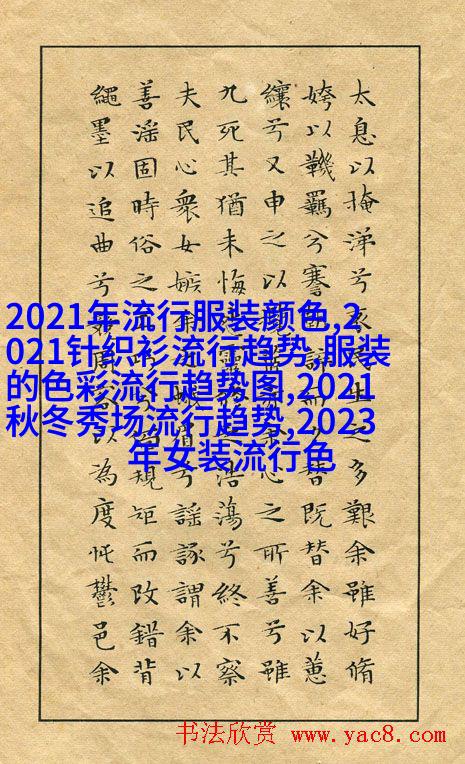 太息以掩涕兮哀民生之多艱余雖好脩
姱以鞿羈兮謇誶而夕替既替余以蕙
纕兮又申之以心之所善兮雖
九死其猶未悔浩蕩兮終不察
夫民心衆女嫉眉兮謠諑謂余以
善滛固時俗之規矩而改錯背
繩墨以追曲兮以為度忳鬱邑余
2021年流行服装颜色,2
021针织衫流行趋势,服装
的色彩流行趋势图,2021
秋冬秀场流行趋势,2023
年女装流行色
书法欣赏 www.yac8.com